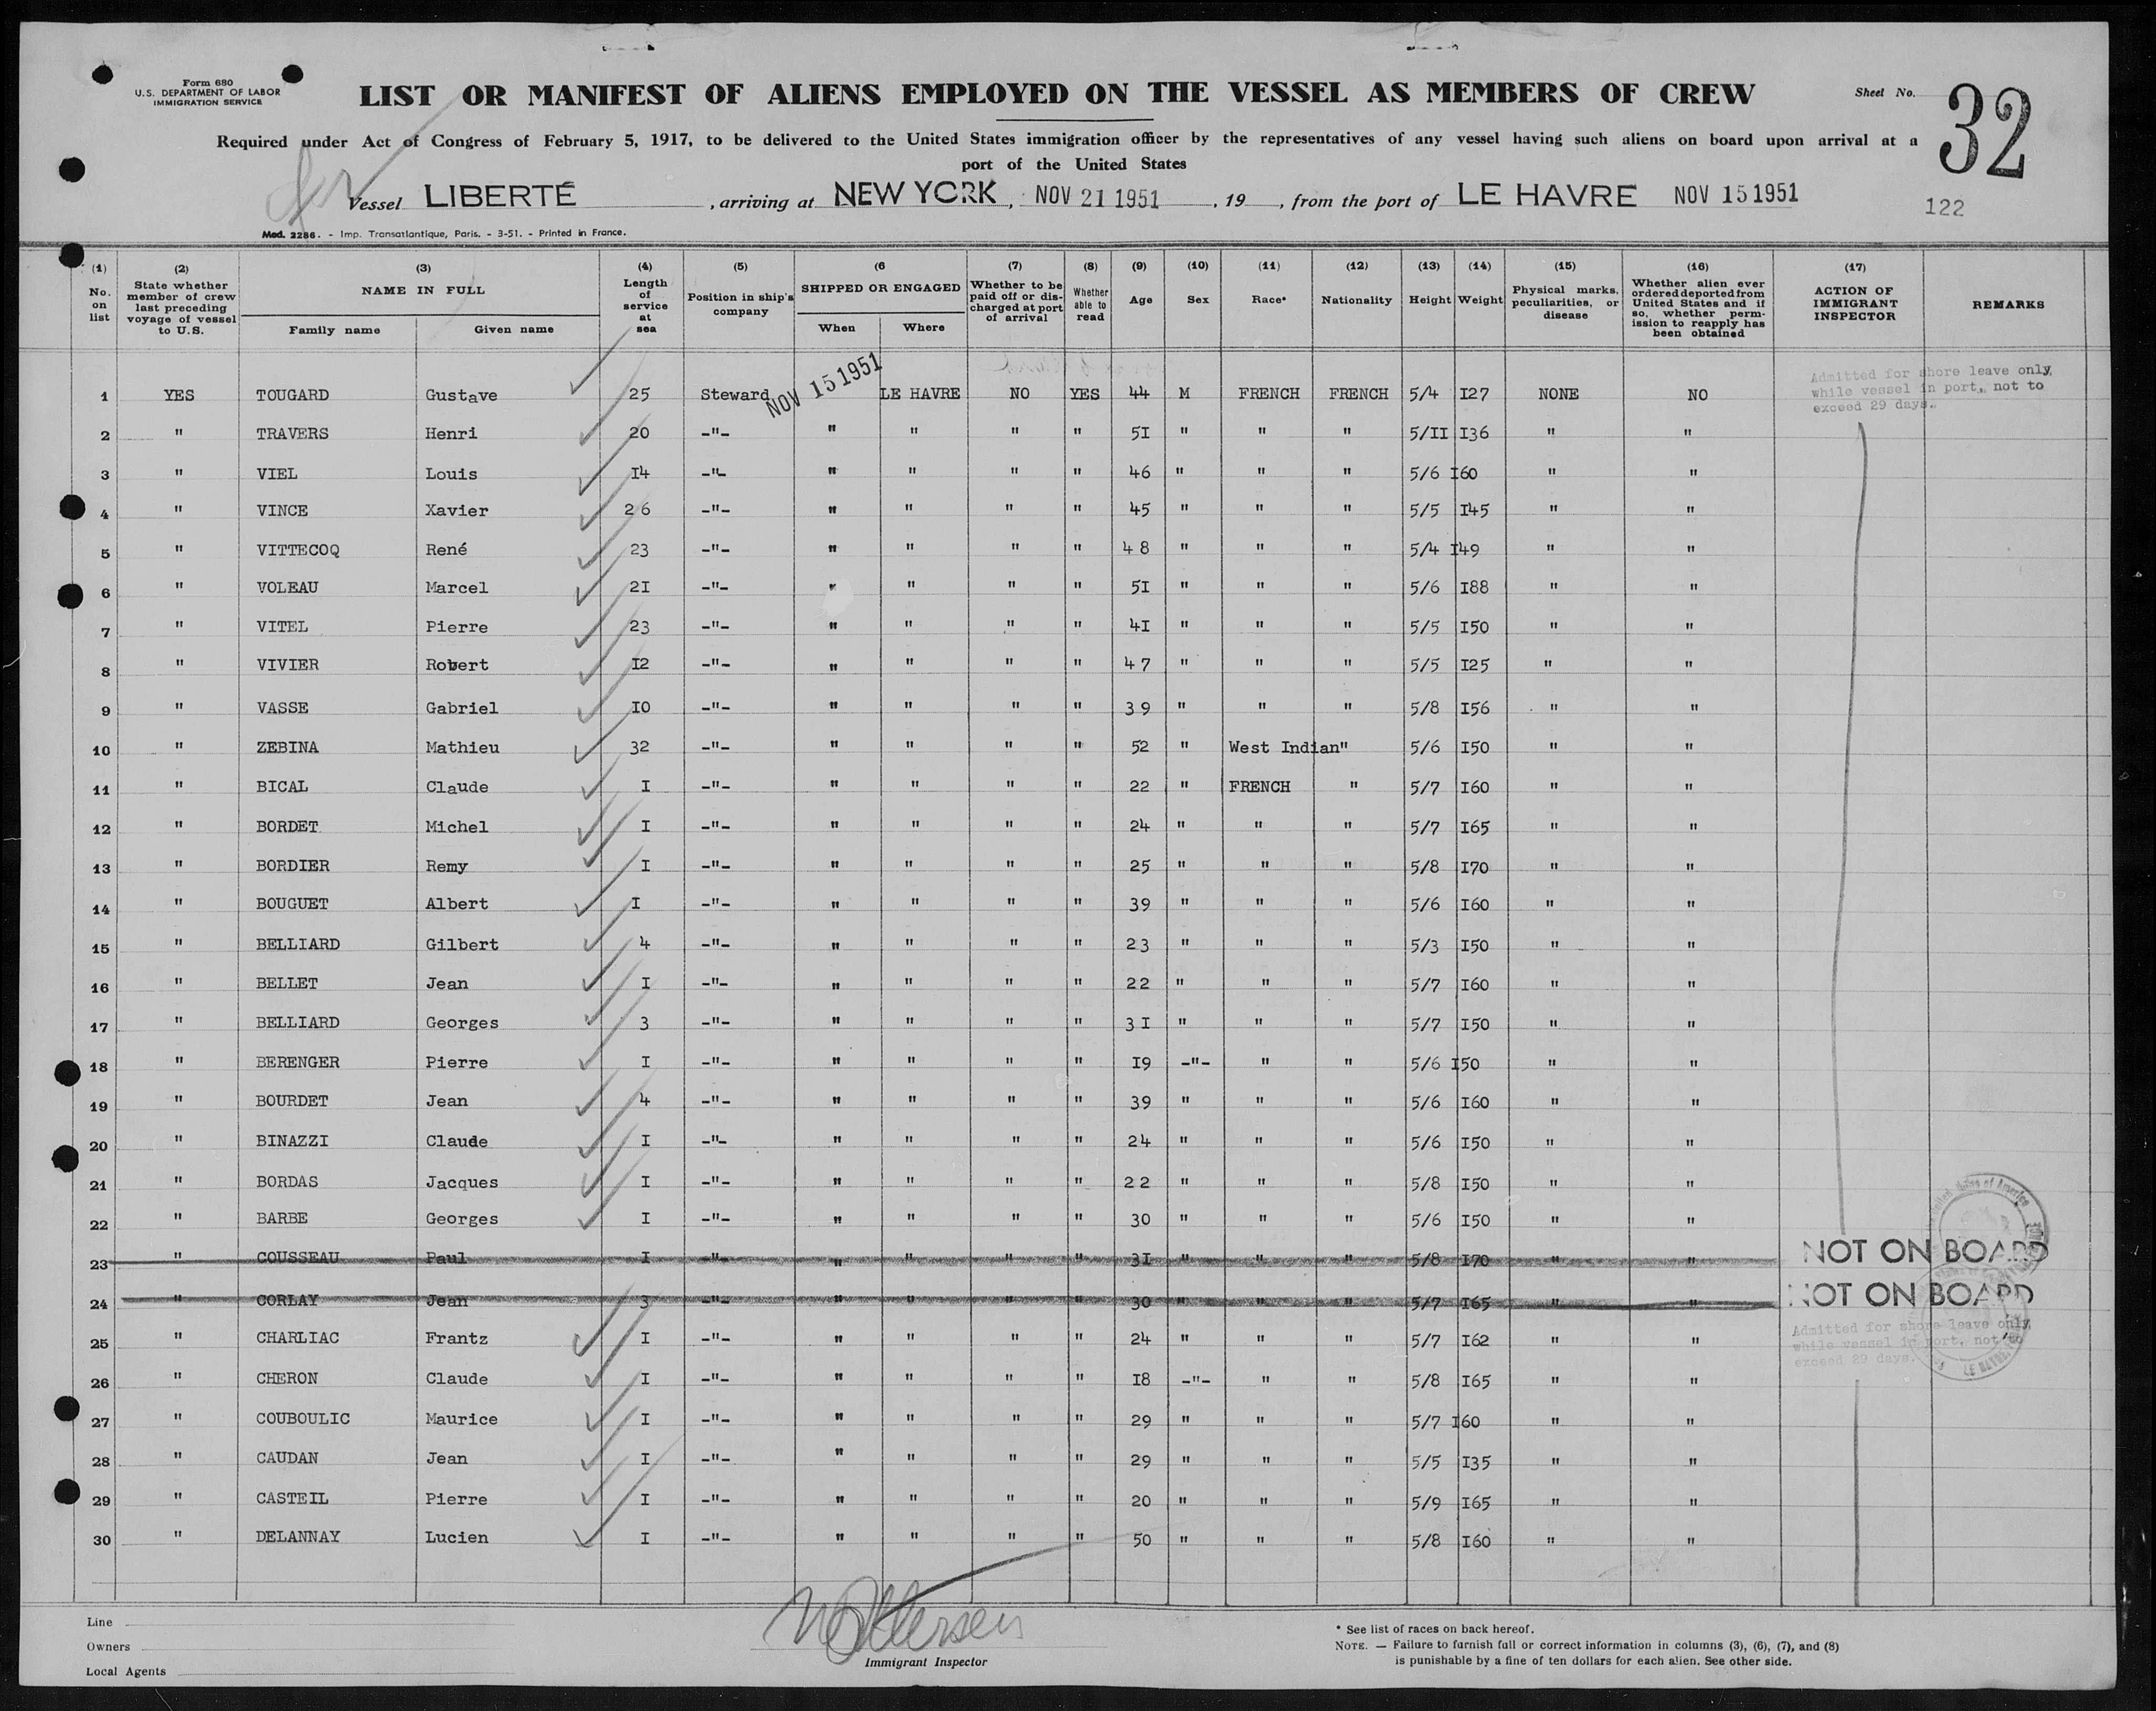 Form 680
U.S. DEPARTMENT OF LABOR
IMMIGRATION SERVICE
LIST OR MANIFEST OF ALIENS EMPLOYED ON THE VESSEL AS MEMBERS OF CREW
Sheet No. 32
Required under Act of Congress of February 5, 1917, to be delivered to the United States immigration officer by the representatives of any vessel having such aliens on board upon arrival at a
port of the United States
Vessel LIBERTÉ , arriving at NEW YORK , NOV 21 1951 , 19 , from the port of LE HAVRE NOV 15 1951
122
Mod. 2286. - Imp. Transatlantique, Paris. - 3-51. - Printed in France.
(1) No. on list (2) State whether member of crew last preceding voyage of vessel to U.S. (3) NAME IN FULL Family name Given name (4) Length of service at sea (5) Position in ship's company (6 SHIPPED OR ENGAGED When Where (7) Whether to be paid off or discharged at port of arrival (8) Whether able to read (9) Age (10) Sex (11) Race* (12) Nationality (13) Height (14) Weight (15) Physical marks, peculiarities, or disease (16) Whether alien ever ordered deported from United States and if so, whether permission to reapply has been obtained (17) ACTION OF IMMIGRANT INSPECTOR REMARKS
1 YES TOUGARD Gustave 25 Steward NOV 15 1951 LE HAVRE NO YES 44 M FRENCH FRENCH 5/4 I27 NONE NO Admitted for shore leave only, while vessel in port, not to exceed 29 days.
2 " TRAVERS Henri 20 -"- " " " " 5I " " " 5/II I36 " "
3 " VIEL Louis I4 -"- " " " " 46 " " " 5/6 I60 " "
4 " VINCE Xavier 26 -"- " " " " 45 " " " 5/5 I45 " "
5 " VITTECOQ René 23 -"- " " " " 48 " " " 5/4 I49 " "
6 " VOLEAU Marcel 2I -"- " " " " 5I " " " 5/6 I88 " "
7 " VITEL Pierre 23 -"- " " " " 4I " " " 5/5 I50 " "
8 " VIVIER Robert I2 -"- " " " " 47 " " " 5/5 I25 " "
9 " VASSE Gabriel IO -"- " " " " 39 " " " 5/8 I56 " "
10 " ZEBINA Mathieu 32 -"- " " " " 52 " West Indian " 5/6 I50 " "
11 " BICAL Claude I -"- " " " " 22 " FRENCH " 5/7 I60 " "
12 " BORDET Michel I -"- " " " " 24 " " " 5/7 I65 " "
13 " BORDIER Remy I -"- " " " " 25 " " " 5/8 I70 " "
14 " BOUGUET Albert I -"- " " " " 39 " " " 5/6 I60 " "
15 " BELLIARD Gilbert 4 -"- " " " " 23 " " " 5/3 I50 " "
16 " BELLET Jean I -"- " " " " 22 " " " 5/7 I60 " "
17 " BELLIARD Georges 3 -"- " " " " 3I " " " 5/7 I50 " "
18 " BERENGER Pierre I -"- " " " " I9 -"- " " 5/6 I50 " "
19 " BOURDET Jean 4 -"- " " " " 39 " " " 5/6 I60 " "
20 " BINAZZI Claude I -"- " " " " 24 " " " 5/6 I50 " "
21 " BORDAS Jacques I -"- " " " " 22 " " " 5/8 I50 " "
22 " BARBE Georges I -"- " " " " 30 " " " 5/6 I50 " "
23 " COUSSEAU Paul I -"- " " " " 3I " " " 5/8 I70 " " NOT ON BOARD
24 " CORLAY Jean 3 -"- " " " " 30 " " " 5/7 I65 " " NOT ON BOARD
25 " CHARLIAC Frantz I -"- " " " " 24 " " " 5/7 I62 " " Admitted for shore leave only, while vessel in port, not to exceed 29 days.
26 " CHERON Claude I -"- " " " " I8 -"- " " 5/8 I65 " "
27 " COUBOULIC Maurice I -"- " " " " 29 " " " 5/7 I60 " "
28 " CAUDAN Jean I -"- " " " " 29 " " " 5/5 I35 " "
29 " CASTEIL Pierre I -"- " " " " 20 " " " 5/9 I65 " "
30 " DELANNAY Lucien I -"- " " " " 50 " " " 5/8 I60 " "
Line
Owners
Local Agents
Immigrant Inspector
* See list of races on back hereof.
NOTE. — Failure to furnish full or correct information in columns (3), (6), (7), and (8)
is punishable by a fine of ten dollars for each alien. See other side.